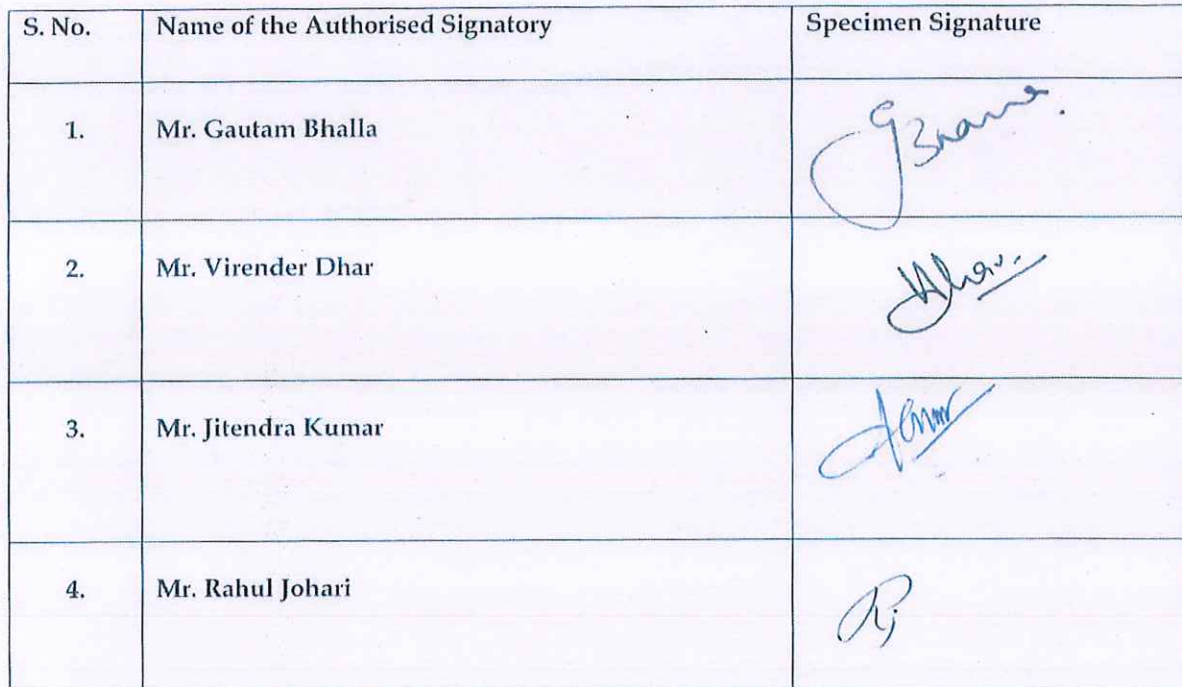 S. No. Name of the Authorised Signatory Specimen Signature
1. Mr. Gautam Bhalla
2. Mr. Virender Dhar
3. Mr. Jitendra Kumar
4. Mr. Rahul Johari